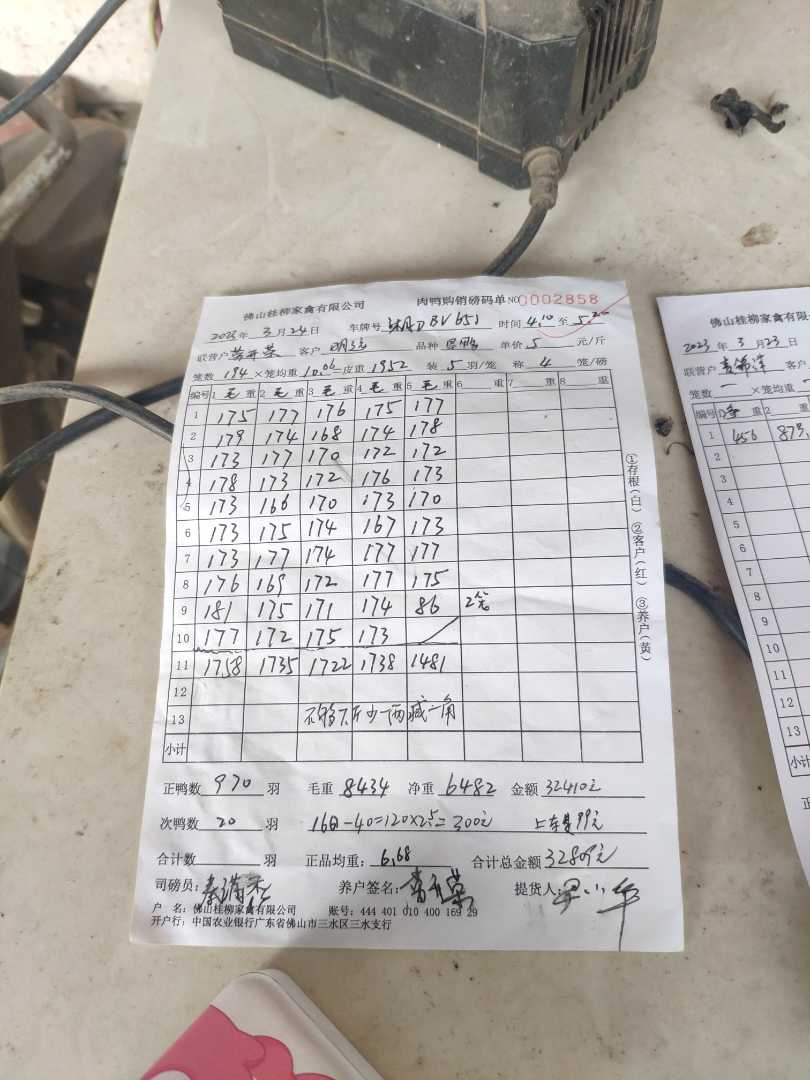 佛山桂柳家禽有限公司 肉鸭购销磅码单 NO 0002858
2023年 3月24日 车牌号 BV651 时间 4.10 至 5.20
联营户 客户 品种 单价 5 元/斤
笼数 194 ×笼均重 10.06 皮重 1952 装 5 羽/笼 称 4 笼/磅
编号 1 毛 重 2 毛 重 3 毛 重 4 毛 重 5 毛 重 6 重 7 重 8 重
1 175 177 176 175 177
2 179 174 168 174 178
3 173 177 170 172 172
4 178 173 172 176 173
5 173 166 170 173 170
6 173 175 174 167 173
7 173 177 174 177 177
8 176 169 172 177 175
9 181 175 171 174 86 2笼
10 177 172 175 173
11 1758 1735 1722 1738 1481
12
13 不够7斤少一两减一角
小计
正鸭数 970 羽 毛重 8434 净重 6482 金额 32410元
次鸭数 20 羽 160-40=120×2.5=300元 上车费99元
合计数 羽 正品均重: 6.68 合计总金额 32809元
司磅员: 养户签名: 提货人:
户 名: 佛山桂柳家禽有限公司 账号: 444 401 010 400 169 29
开户行: 中国农业银行广东省佛山市三水区三水支行
①存根(白) ②客户(红) ③养户(黄)
佛山桂柳家禽有限
2023年 3月23日
联营户 客户
笼数 ×笼均重
编号 1 净 重 2 重
1 456
2
3
4
5
6
7
8
9
10
11
12
13
小计